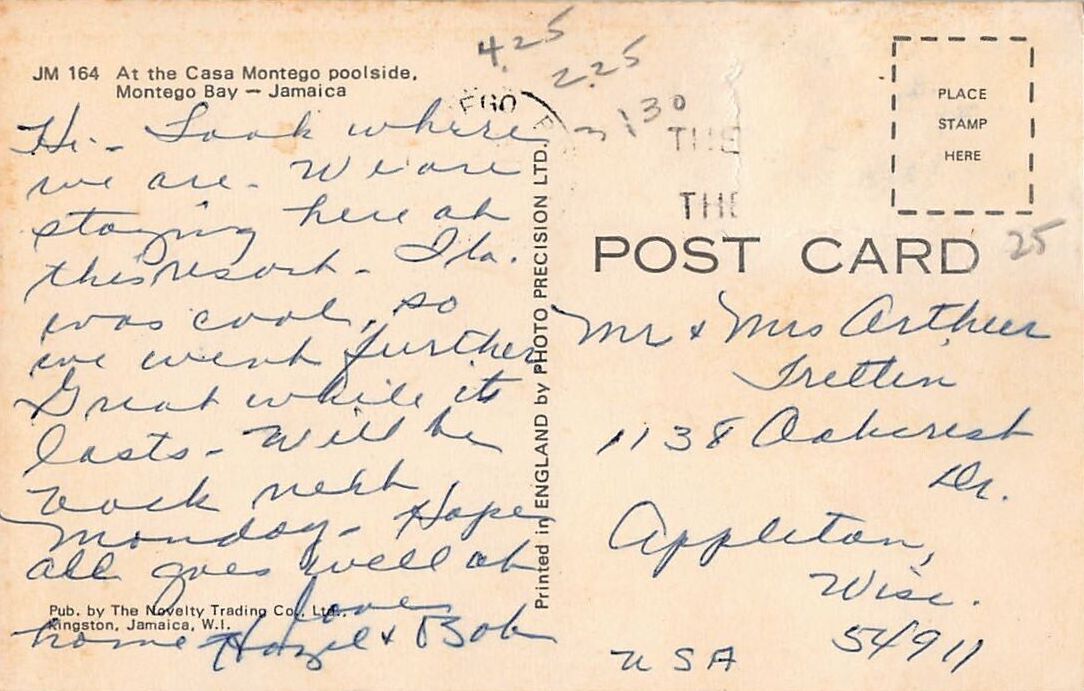 JM 164 At the Casa Montego poolside,
Montego Bay – Jamaica
Hi - Look where
we are. We are
staying here at
this resort - Fla.
was cool, so
we went further
Great while it
lasts - Will be
back next
Monday - Hope
all goes well at
home love
Hazel & Bob
Pub. by The Novelty Trading Co., Ltd.,
Kingston, Jamaica, W.I.
Printed in ENGLAND by PHOTO PRECISION LTD.
4.25
2.25
130
EGO
THE
THE
PLACE
STAMP
HERE
POST CARD
25
Mr & Mrs Arthur
Trettin
1138 Oakcrest
Dr.
Appleton,
Wisc.
54911
USA